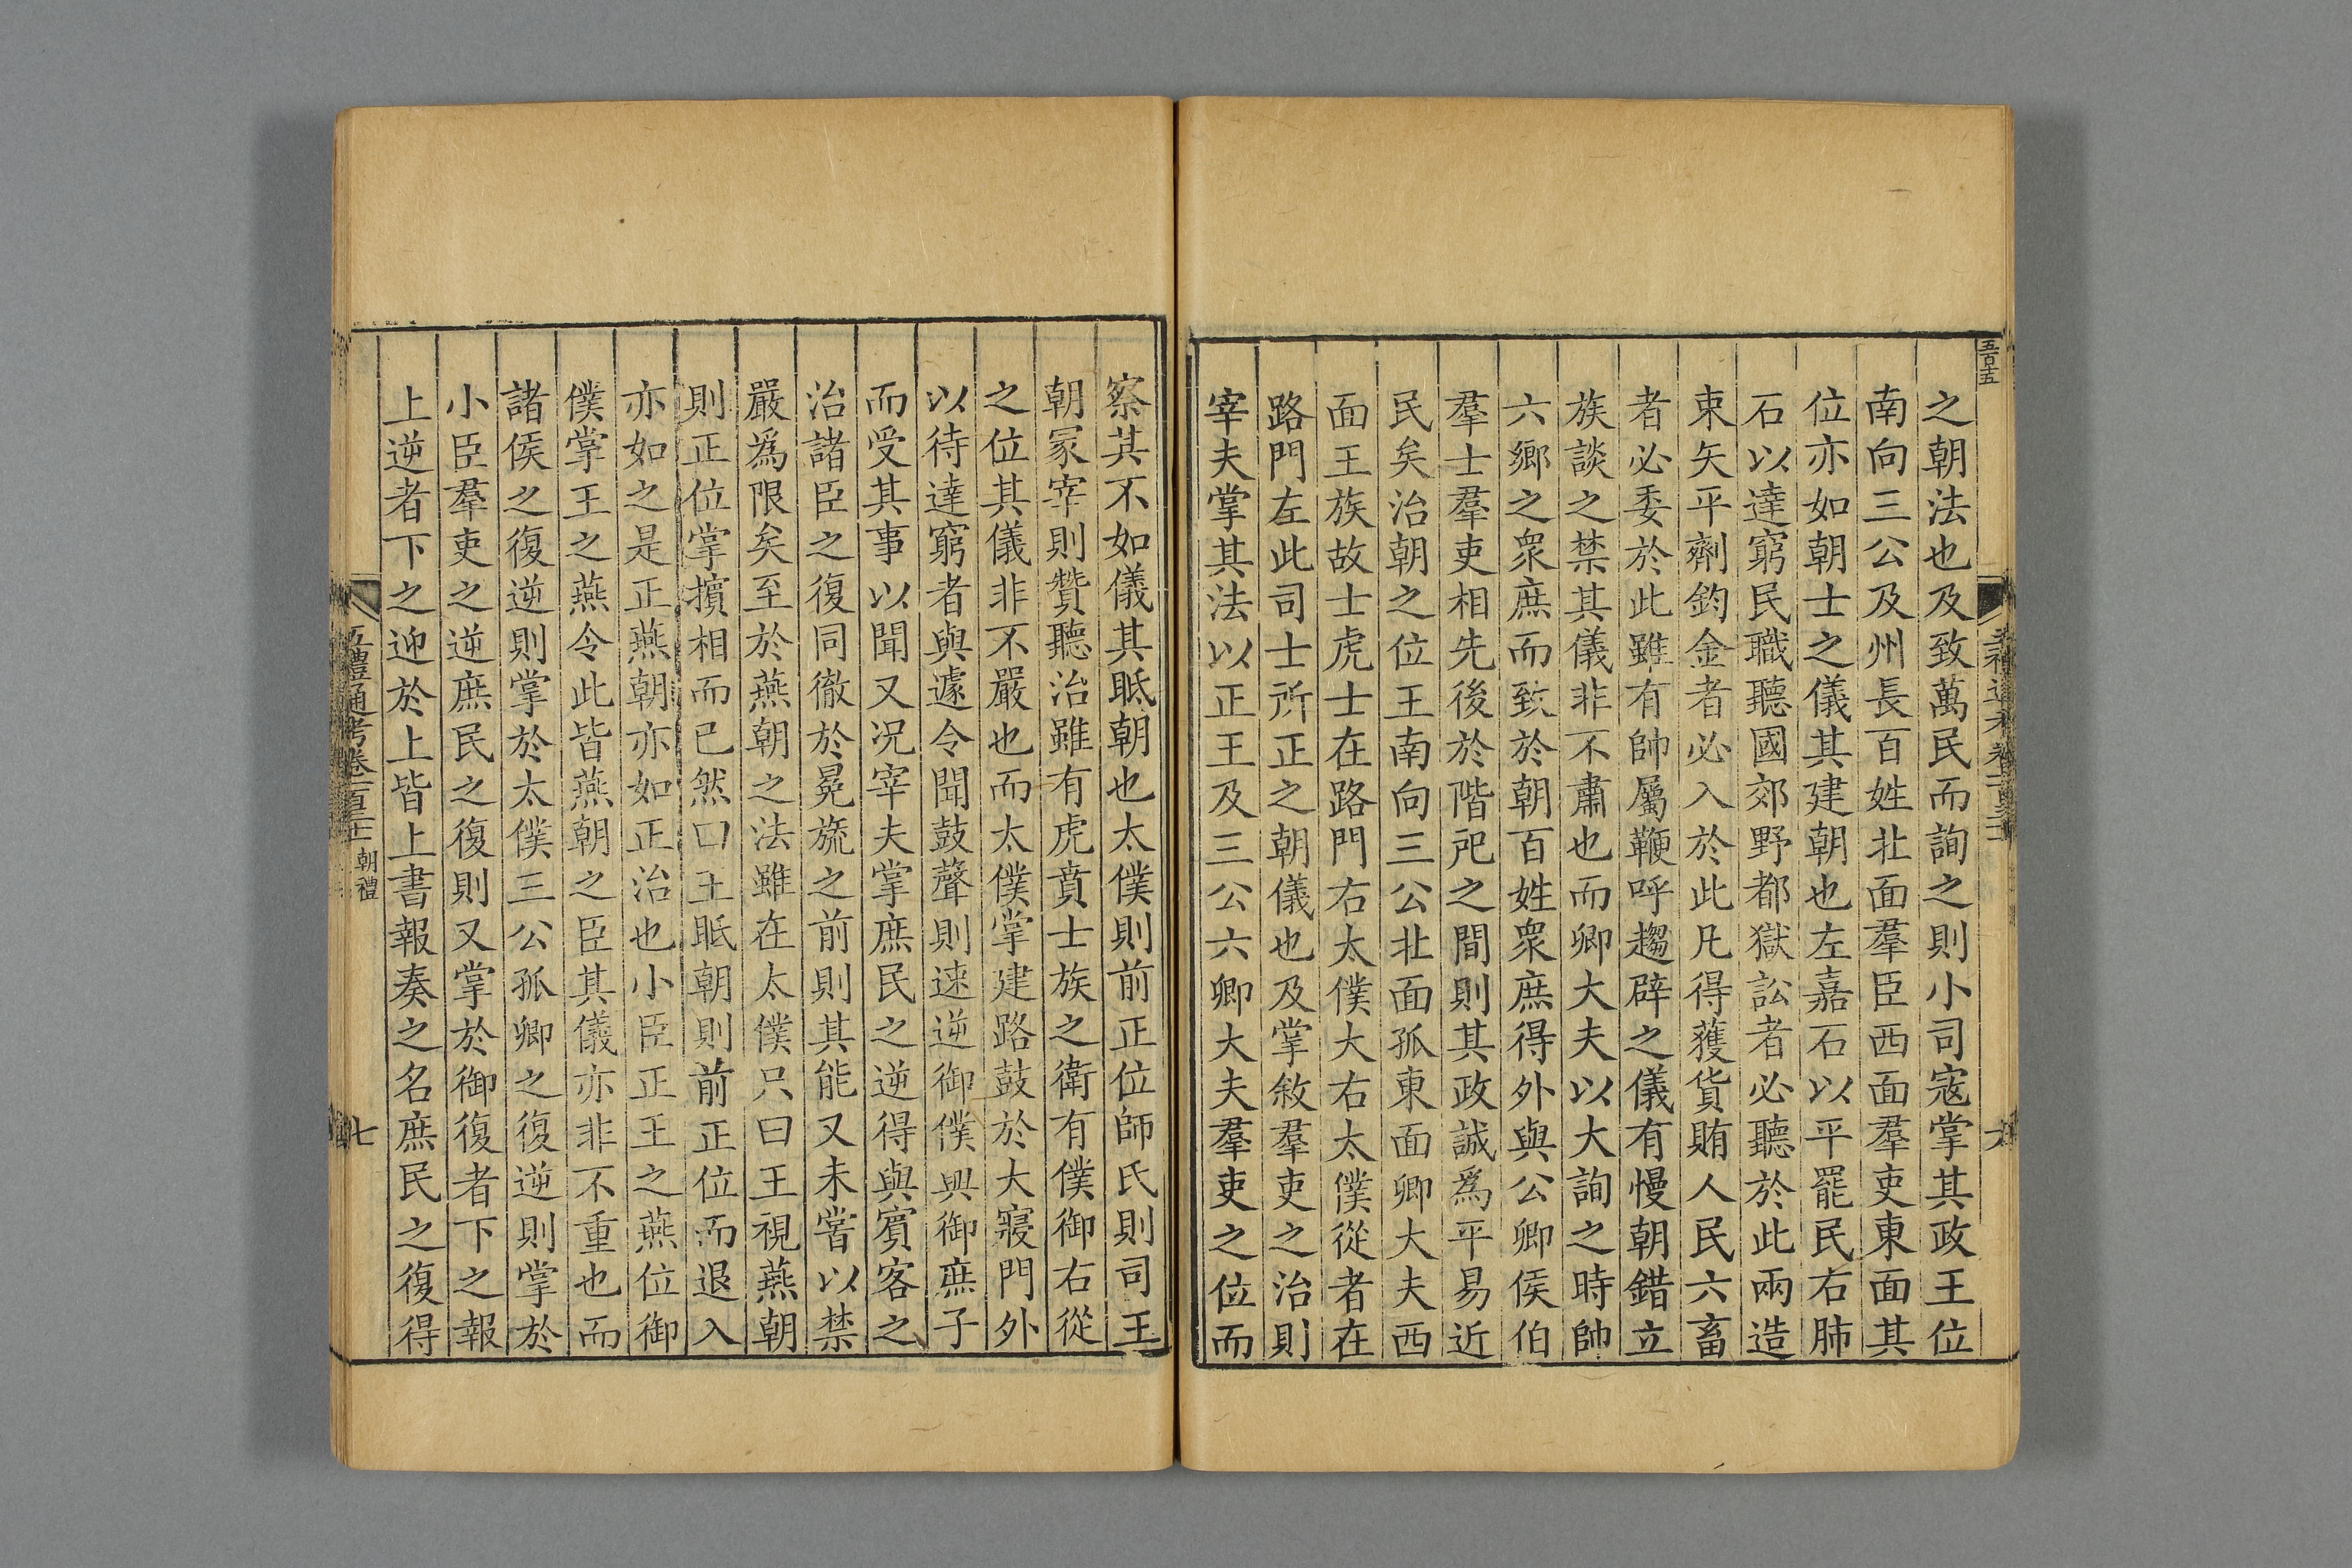 之朝法也及致萬民而詢之則小司寇掌其政王位
南向三公及州長百姓北面羣臣西面羣吏東面其
位亦如朝士之儀其建朝也左嘉石以平罷民右肺
石以達窮民職聽國郊野都獄訟者必聽於此兩造
束矢平劑鈞金者必入於此凡得獲貨賄人民六畜
者必委於此雖有帥屬鞭呼趨辟之儀有慢朝錯立
族談之禁其儀非不肅也而卿大夫以大詢之時帥
六鄉之衆庶而致於朝百姓衆庶得外與公卿侯伯
羣士羣吏相先後於階戺之間則其政誠爲平易近
民矣治朝之位王南向三公北面孤東面卿大夫西
面王族故士虎士在路門右太僕大右太僕從者在
路門左此司士所正之朝儀也及掌敘羣吏之治則
宰夫掌其法以正王及三公六卿大夫羣吏之位而
察其不如儀其眡朝也太僕則前正位師氏則司王
朝冢宰則贊聽治雖有虎賁士族之衛有僕御右從
之位其儀非不嚴也而太僕掌建路鼓於大寢門外
以待達窮者與遽令聞鼓聲則速逆御僕與御庶子
而受其事以聞又况宰夫掌庶民之逆得與賓客之
治諸臣之復同徹於冕旒之前則其能又未嘗以禁
嚴爲限矣至於燕朝之法雖在太僕只曰王視燕朝
則正位掌擯相而已然曰王眡朝則前正位而退入
亦如之是正燕朝亦如正治也小臣正王之燕位御
僕掌王之燕令此皆燕朝之臣其儀亦非不重也而
諸侯之復逆則掌於太僕三公孤卿之復逆則掌於
小臣羣吏之逆庶民之復則又掌於御復者下之報
上逆者下之迎於上皆上書報奏之名庶民之復得
五禮通考卷一百三十二 朝禮
七